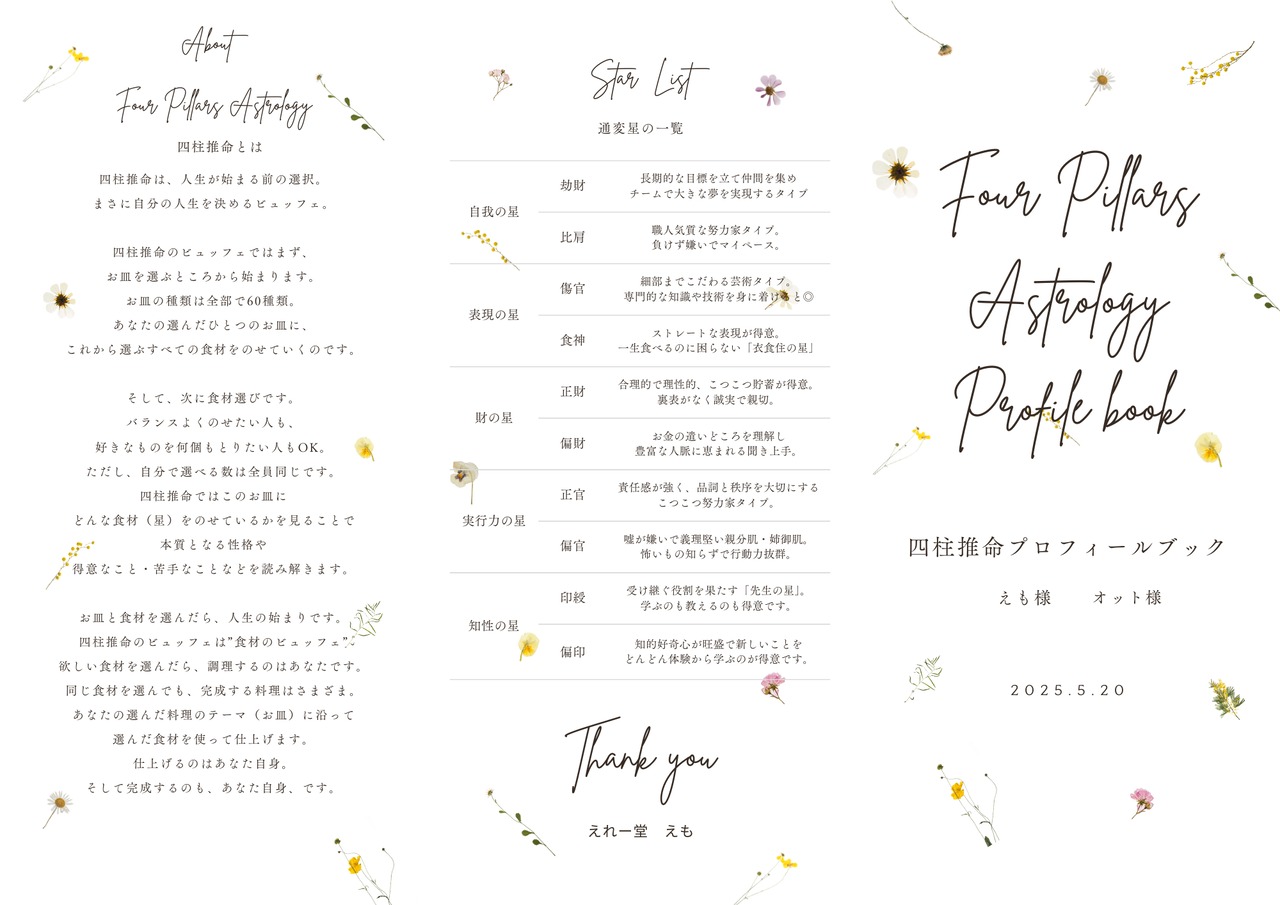 About
Four Pillars Astrology
四柱推命とは
四柱推命は、人生が始まる前の選択。
まさに自分の人生を決めるビュッフェ。
四柱推命のビュッフェではまず、
お皿を選ぶところから始まります。
お皿の種類は全部で60種類。
あなたの選んだひとつのお皿に、
これから選ぶすべての食材をのせていくのです。
そして、次に食材選びです。
バランスよくのせたい人も、
好きなものを何個もとりたい人もOK。
ただし、自分で選べる数は全員同じです。
四柱推命ではこのお皿に
どんな食材（星）をのせているかを見ることで
本質となる性格や
得意なこと・苦手なことなどを読み解きます。
お皿と食材を選んだら、人生の始まりです。
四柱推命のビュッフェは”食材のビュッフェ”。
欲しい食材を選んだら、調理するのはあなたです。
同じ食材を選んでも、完成する料理はさまざま。
あなたの選んだ料理のテーマ（お皿）に沿って
選んだ食材を使って仕上げます。
仕上げるのはあなた自身。
そして完成するのも、あなた自身、です。
Star List
通変星の一覧
自我の星
劫財
長期的な目標を立て仲間を集め
チームで大きな夢を実現するタイプ
比肩
職人気質な努力家タイプ。
負けず嫌いでマイペース。
表現の星
傷官
細部までこだわる芸術タイプ。
専門的な知識や技術を身に着けると◎
食神
ストレートな表現が得意。
一生食べるのに困らない「衣食住の星」
財の星
正財
合理的で理性的、こつこつ貯蓄が得意。
裏表がなく誠実で親切。
偏財
お金の遣いどころを理解し
豊富な人脈に恵まれる聞き上手。
実行力の星
正官
責任感が強く、品詞と秩序を大切にする
こつこつ努力家タイプ。
偏官
嘘が嫌いで義理堅い親分肌・姉御肌。
怖いもの知らずで行動力抜群。
知性の星
印綬
受け継ぐ役割を果たす「先生の星」。
学ぶのも教えるのも得意です。
偏印
知的好奇心が旺盛で新しいことを
どんどん体験から学ぶのが得意です。
Thank you
えれー堂　えも
Four Pillars
Astrology
Profile book
四柱推命プロフィールブック
えも様　　オット様
2025.5.20